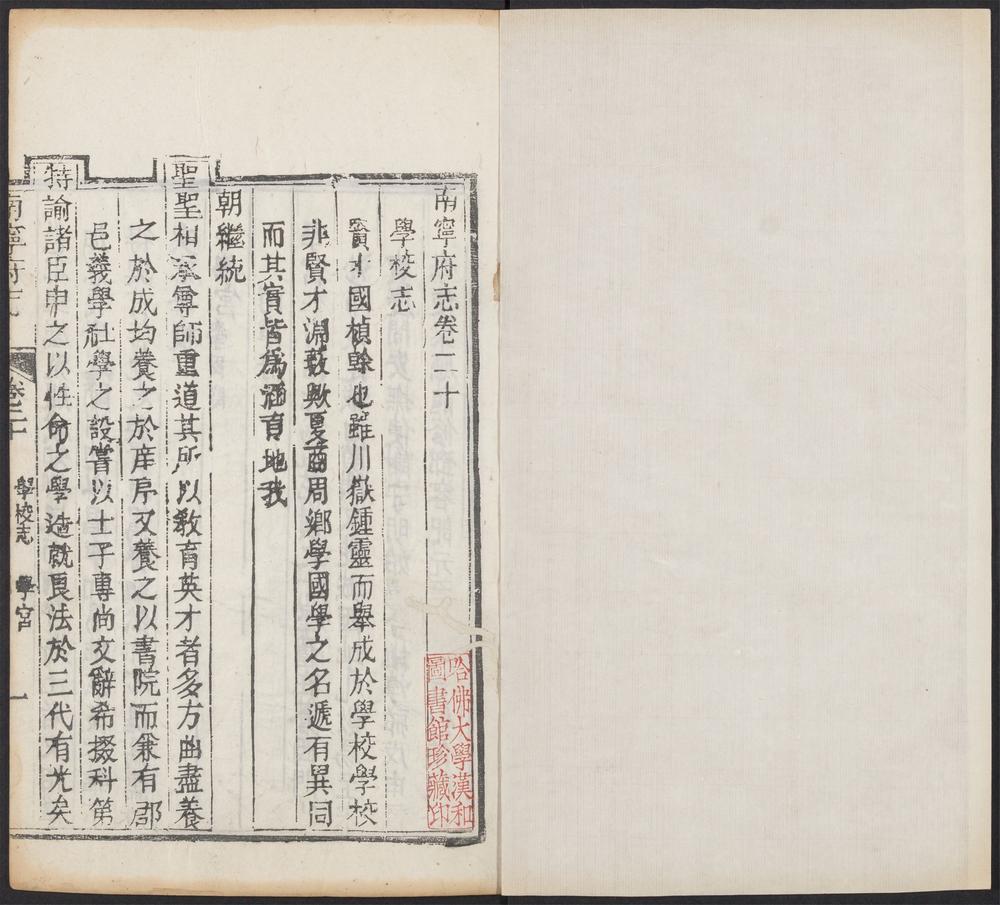 南寧府志卷二十
學校志
賢才國楨榦也雖川嶽鍾靈而舉成於學校學校
非賢才淵藪歟夏商周鄉學國學之名遞有異同
而其實皆爲涵育地我
朝繼統
聖聖相承尊師重道其所以敎育英才者多方曲盡養
之於成均養之於庠序又養之以書院而兼有郡
邑義學社學之設嘗以士子專尚文辭希掇科第
特諭諸臣申之以性命之學造就良法於三代有光矣
南寧府志 卷二十 學校志 學宮 一
哈佛大學漢和
圖書館珍藏印